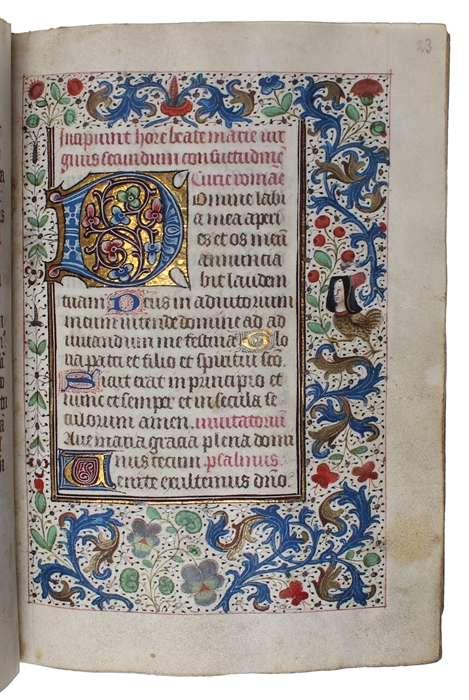 23
Incipiunt hore beate marie vir
ginis secundum consuetudinē
Curie romae
Domine labi
a mea aperi
es et os meū
annuncia
bit laudem
tuam Deus in adiutorium
meum intende domine ad ad
iuuandum me festina Glo
ria patri et filio et spiritui sco
Sicut erat in principio et
nunc et semper et in secula se
culorum amen. inuitatoriū
Aue maria gracia plena domi
nus tecum psalmus.
Uenite exultemus dño